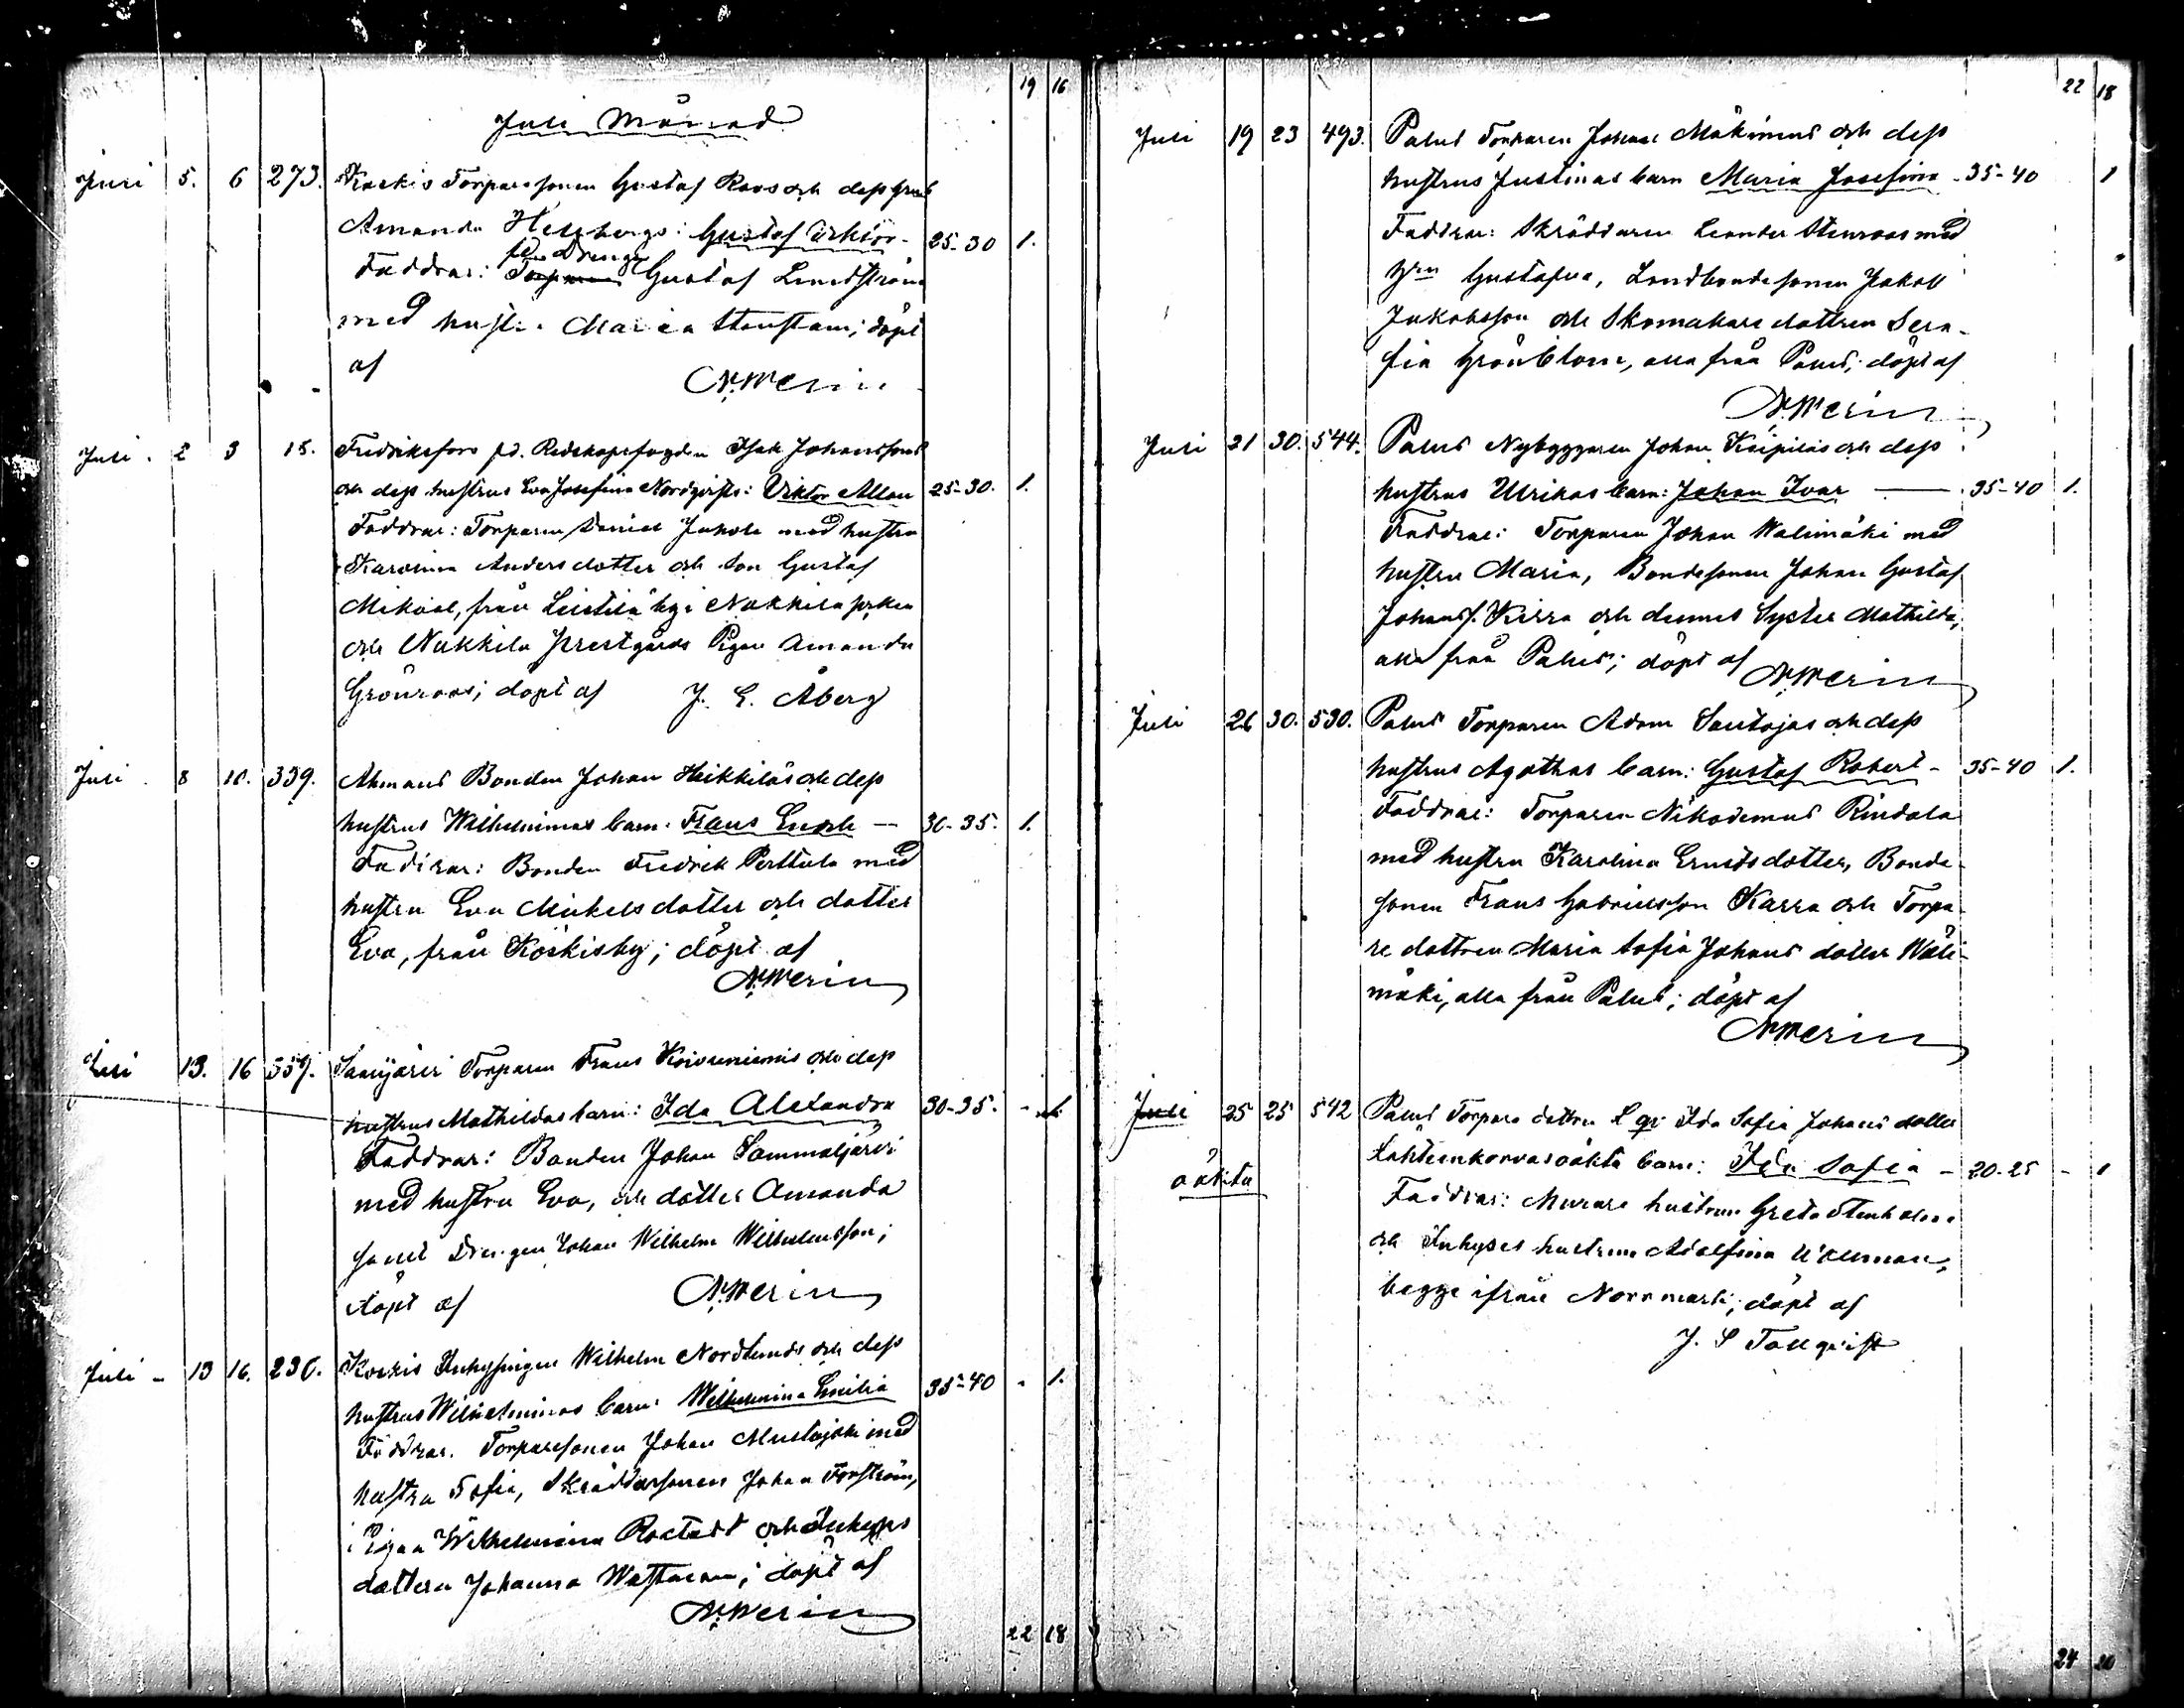 19 16
Juli Månad
Juli 5. 6 273. Koskis Torparesonen Gustaf Roos och dess hust
Amanda Hellbergs: Gustaf Wiktor - 25-30 1.
fd Drengen
Faddrar: Torparen Gustaf Lindström
med hustru Maria Stenstam; döpt
af
N. Merin
Juli. 2 3 15. Fredriksfors fd. Redskapsfogden Isak Johanssons
och dess hustrus Eva Josefina Nordqvists: Viktor Allan 25-30. 1.
Faddrar: Torparen Daniel Jakola med hustru
Karolina Andersdotter och Son Gustaf
Mikael, från Leistilä by i Nakkila socken
och Nakkila prestgårds Pigan Amanda
Grönroos; döpt af J. E. Åberg
Juli. 8 10. 339. Ahmaus Bonden Johan Heikkiläs och dess
hustrus Wilhelminas barn: Frans Enok — 30-35. 1.
Faddrar: Bonden Fredrik Perttula med
hustru Eva Mickelsdotter och dotter
Eva, från Koskis by; döpt af
N. Merin
Juli 13. 16 359. Saarijärvi Torparen Frans Koivuniemis och dess
hustrus Mathildas barn: Ida Alexandra 30-35. - 1.
Faddrar: Bonden Johan Sammaljärvi
med hustru Eva, och dotter Amanda
samt Drengen Johan Wilhelm Wilhelmsson;
döpt af N. Merin
Juli - 13 16. 236. Koskis Inhysingen Wilhelm Nordlunds och dess
hustrus Wilhelminas barn: Wilhelmina Emilia 35-40 - 1.
Faddrar. Torparesonen Johan Mustajoki med
hustru Sofia, Skräddarsonen Johan Forström,
Pigan Wilhelmina Rostedt och Inhyses
dottern Johanna Wastman; döpt af
N. Merin
22 18
22 18
Juli 19 23 493. Palus Torparen Johan Mäkinens och dess
hustrus Justinas barn Maria Josefina - 35-40 1
Faddrar: Skräddaren Leander Stenroos med
Gustafva, Landbondesonen Jakob
Jakobsson och Skomakare dottren Sera-
fia Grönblom, alla från Palus; döpt af
N. Merin
Juli 21 30. 544. Palus Nybyggaren Johan Kiipiläs och dess
hustrus Ulrikas barn: Johan Ivar — 35-40 1.
Faddrar: Torparen Johan Walimäki med
hustru Maria, Bondesonen Johan Gustaf
Johanss. Kirra och dennes Syster Mathilda,
alla från Palus; döpt af N. Merin
Juli 26 30. 530. Palus Torparen Adam Santojas och dess
hustrus Agathas barn: Gustaf Robert - 35-40 1.
Faddrar: Torparen Nikodemus Rindala
med hustru Karolina Ernstsdotter, Bonde-
sonen Frans Gabrielsson Karra och Torpa-
re dottren Maria Sofia Johans dotter Wäli-
mäki, alla från Palus; döpt af
N. Merin
Juli 25 25 542 Palus Torpare dottren Ida Sofia Johans dotter
oäkta
Lähteenkorvas oäkta barn: Ida Sofia - 20-25 - 1
Faddrar: Murare hustrun Greta Stenholm
och Inhyses hustrun Adolfina Ullman,
begge ifrån Norrmark; döpt af
J. S Tallqvist
24 20